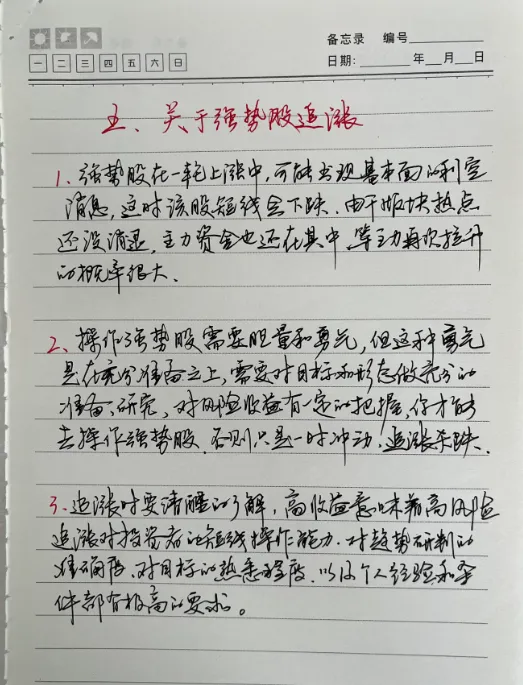 备忘录 编号
一 二 三 四 五 六 日
日期: 年 月 日
五、关于强势股追涨
1、强势股在一轮上涨中,可能出现基本面的利空
消息,这时该股短线会下跌.由于版块热点
还没消退,主力资金也还在其中,等主力再次拉升
的概率很大.
2、操作强势股需要胆量和勇气,但这种勇气
是在充分准备之上,需要对目标和形态做充分的
准备、研究,对风险收益有一定的把握,你才能
去操作强势股.否则只是一时冲动,追涨杀跌.
3、追涨时要清醒的了解,高收益意味着高风险
追涨对投资者的短线操作能力.对趋势研判的
准确度、对目标的熟悉程度、以及个人经验和条
件都有极高的要求。